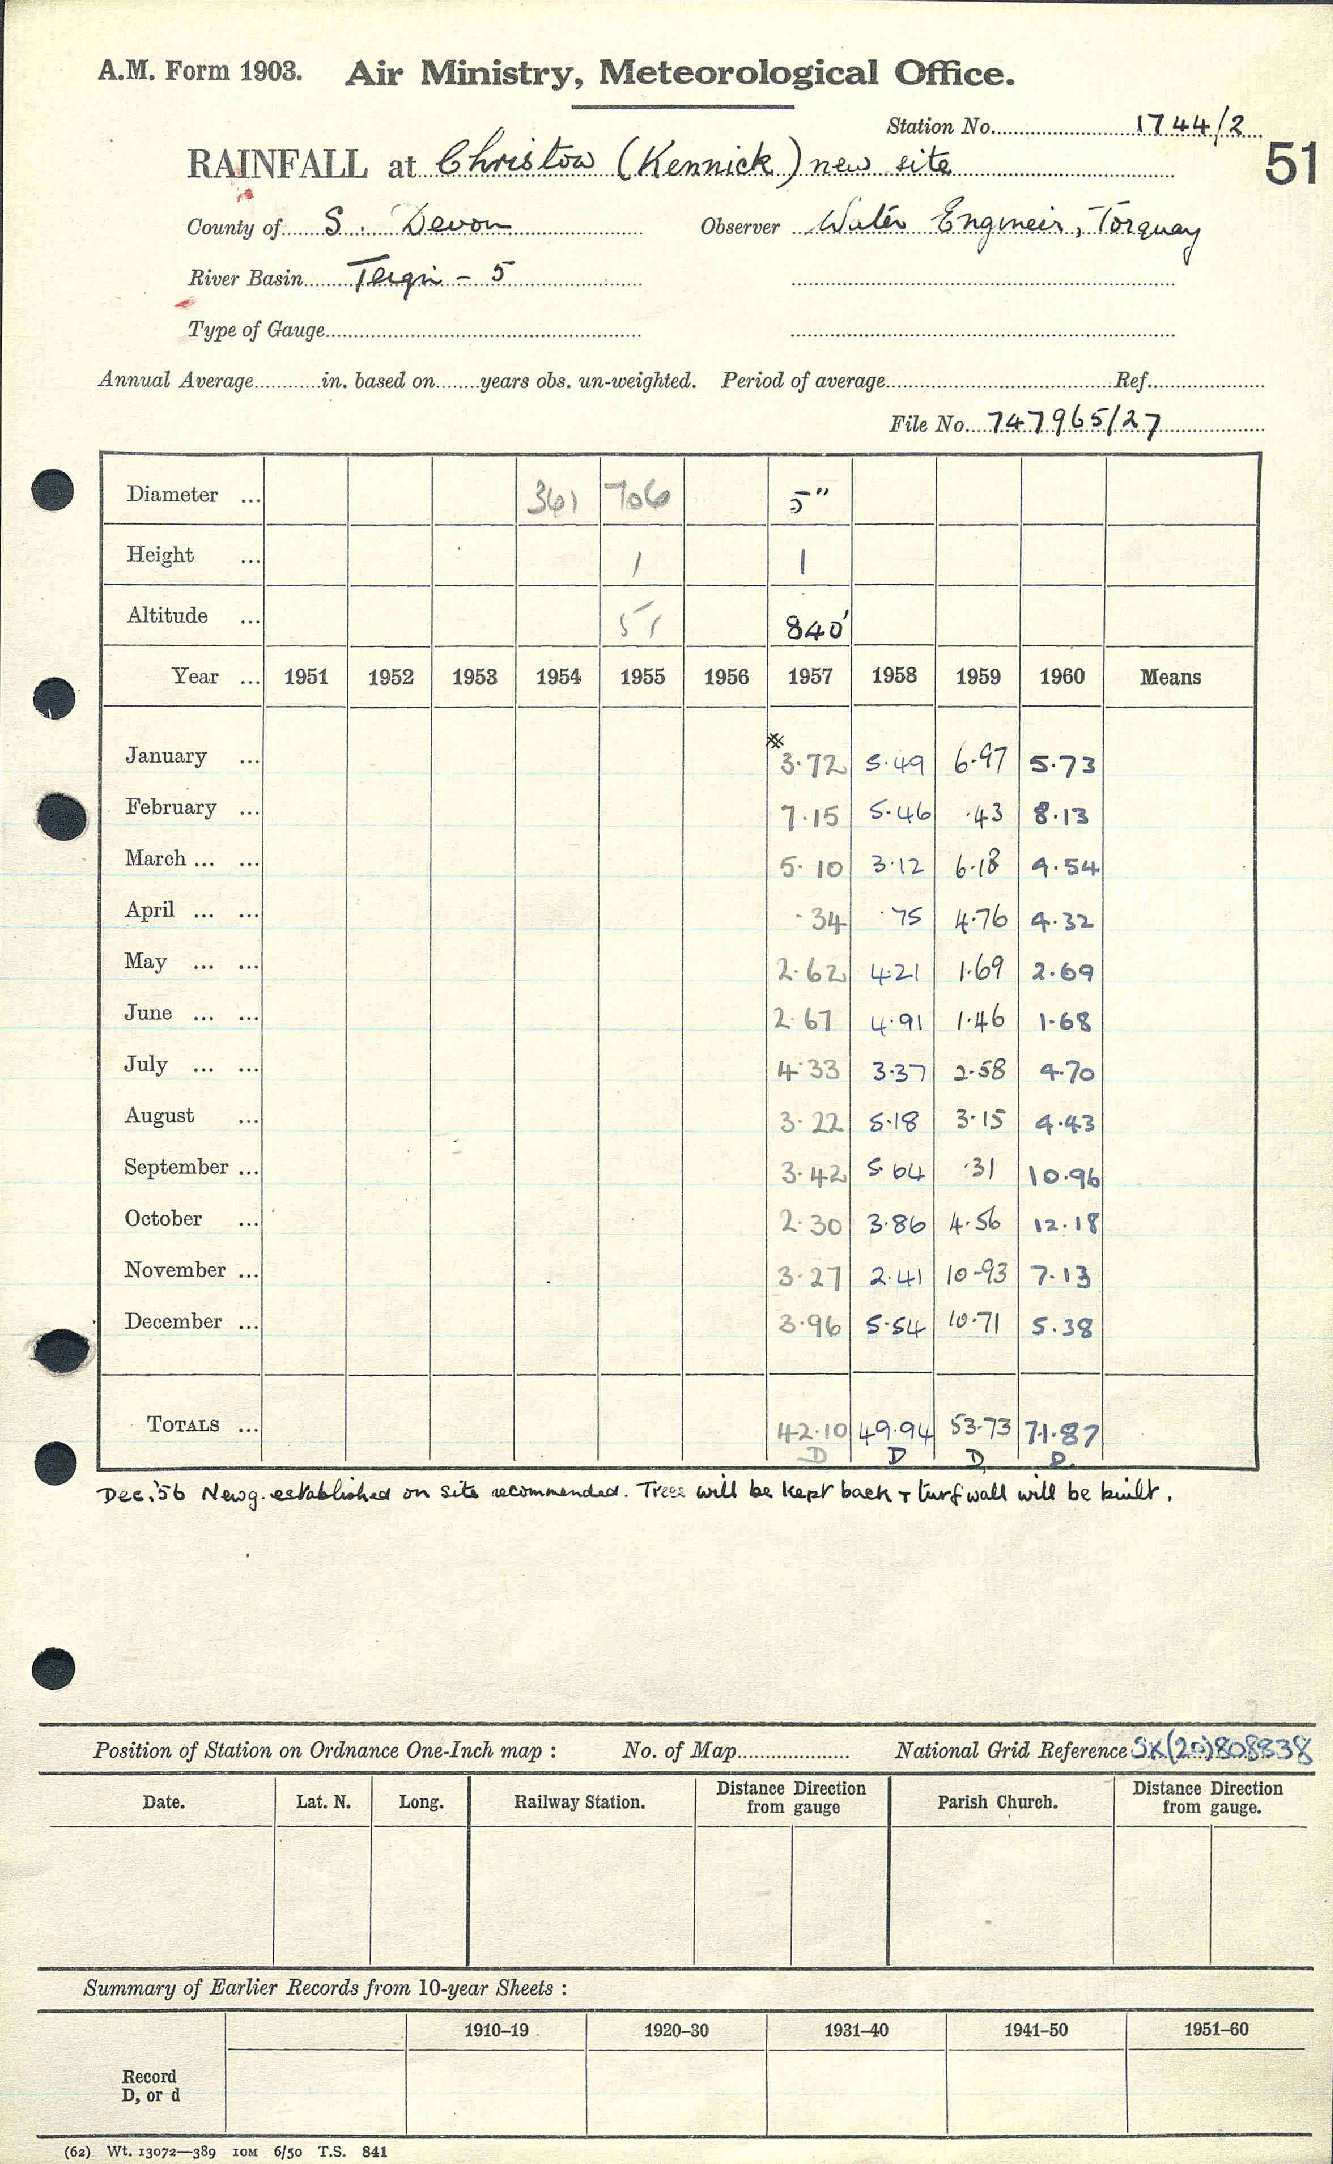 A.M. Form 1903. Air Ministry, Meteorological Office.
Station No. 1744/2
51
RAINFALL at Christow (Kennick) new site
County of S. Devon Observer Water Engineer, Torquay
River Basin Teign - 5
Type of Gauge
Annual Average in. based on years obs. un-weighted. Period of average Ref.
File No. 747965/27
Diameter ... 361 706 5"
Height ... 1 1
Altitude ... 51 840'
Year ... 1951 1952 1953 1954 1955 1956 1957 1958 1959 1960 Means
January ... 3.72 5.49 6.97 5.73
February ... 7.15 5.46 .43 8.13
March ... ... 5.10 3.12 6.18 4.54
April ... ... .34 .75 4.76 4.32
May ... ... 2.62 4.21 1.69 2.69
June ... ... 2.67 4.91 1.46 1.68
July ... ... 4.33 3.37 2.58 4.70
August ... 3.22 5.18 3.15 4.43
September ... 3.42 5.64 .31 10.96
October ... 2.30 3.86 4.56 12.18
November ... 3.27 2.41 10.93 7.13
December ... 3.96 5.54 10.71 5.38
TOTALS ... 42.10 49.94 53.73 71.87
D D D D.
Dec. '56 New g. established on site recommended. Trees will be kept back + turf wall will be built.
Position of Station on Ordnance One-Inch map : No. of Map National Grid Reference SX(20)808838
Date. Lat. N. Long. Railway Station. Distance Direction from gauge Parish Church. Distance Direction from gauge.
Summary of Earlier Records from 10-year Sheets :
1910–19 1920–30 1931–40 1941–50 1951–60
Record
D, or d
(62) Wt. 13072—389 10M 6/50 T.S. 841